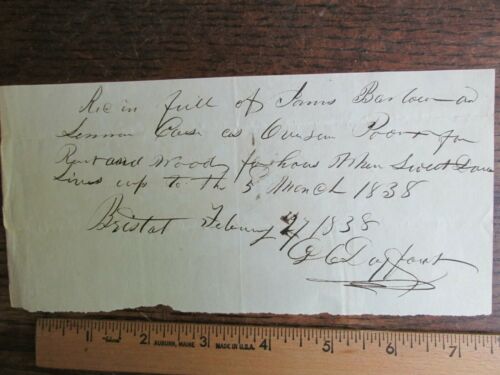 Rec in full of James Barlow and
Cash as Overseer Poor for
Rent and Wood for house Widow Sweet
Lives up to the 5 March 1838
Bristol Febuary 27 1838
1 2 3 4 5 6 7
AUBURN, MAINE MADE IN U.S.A.